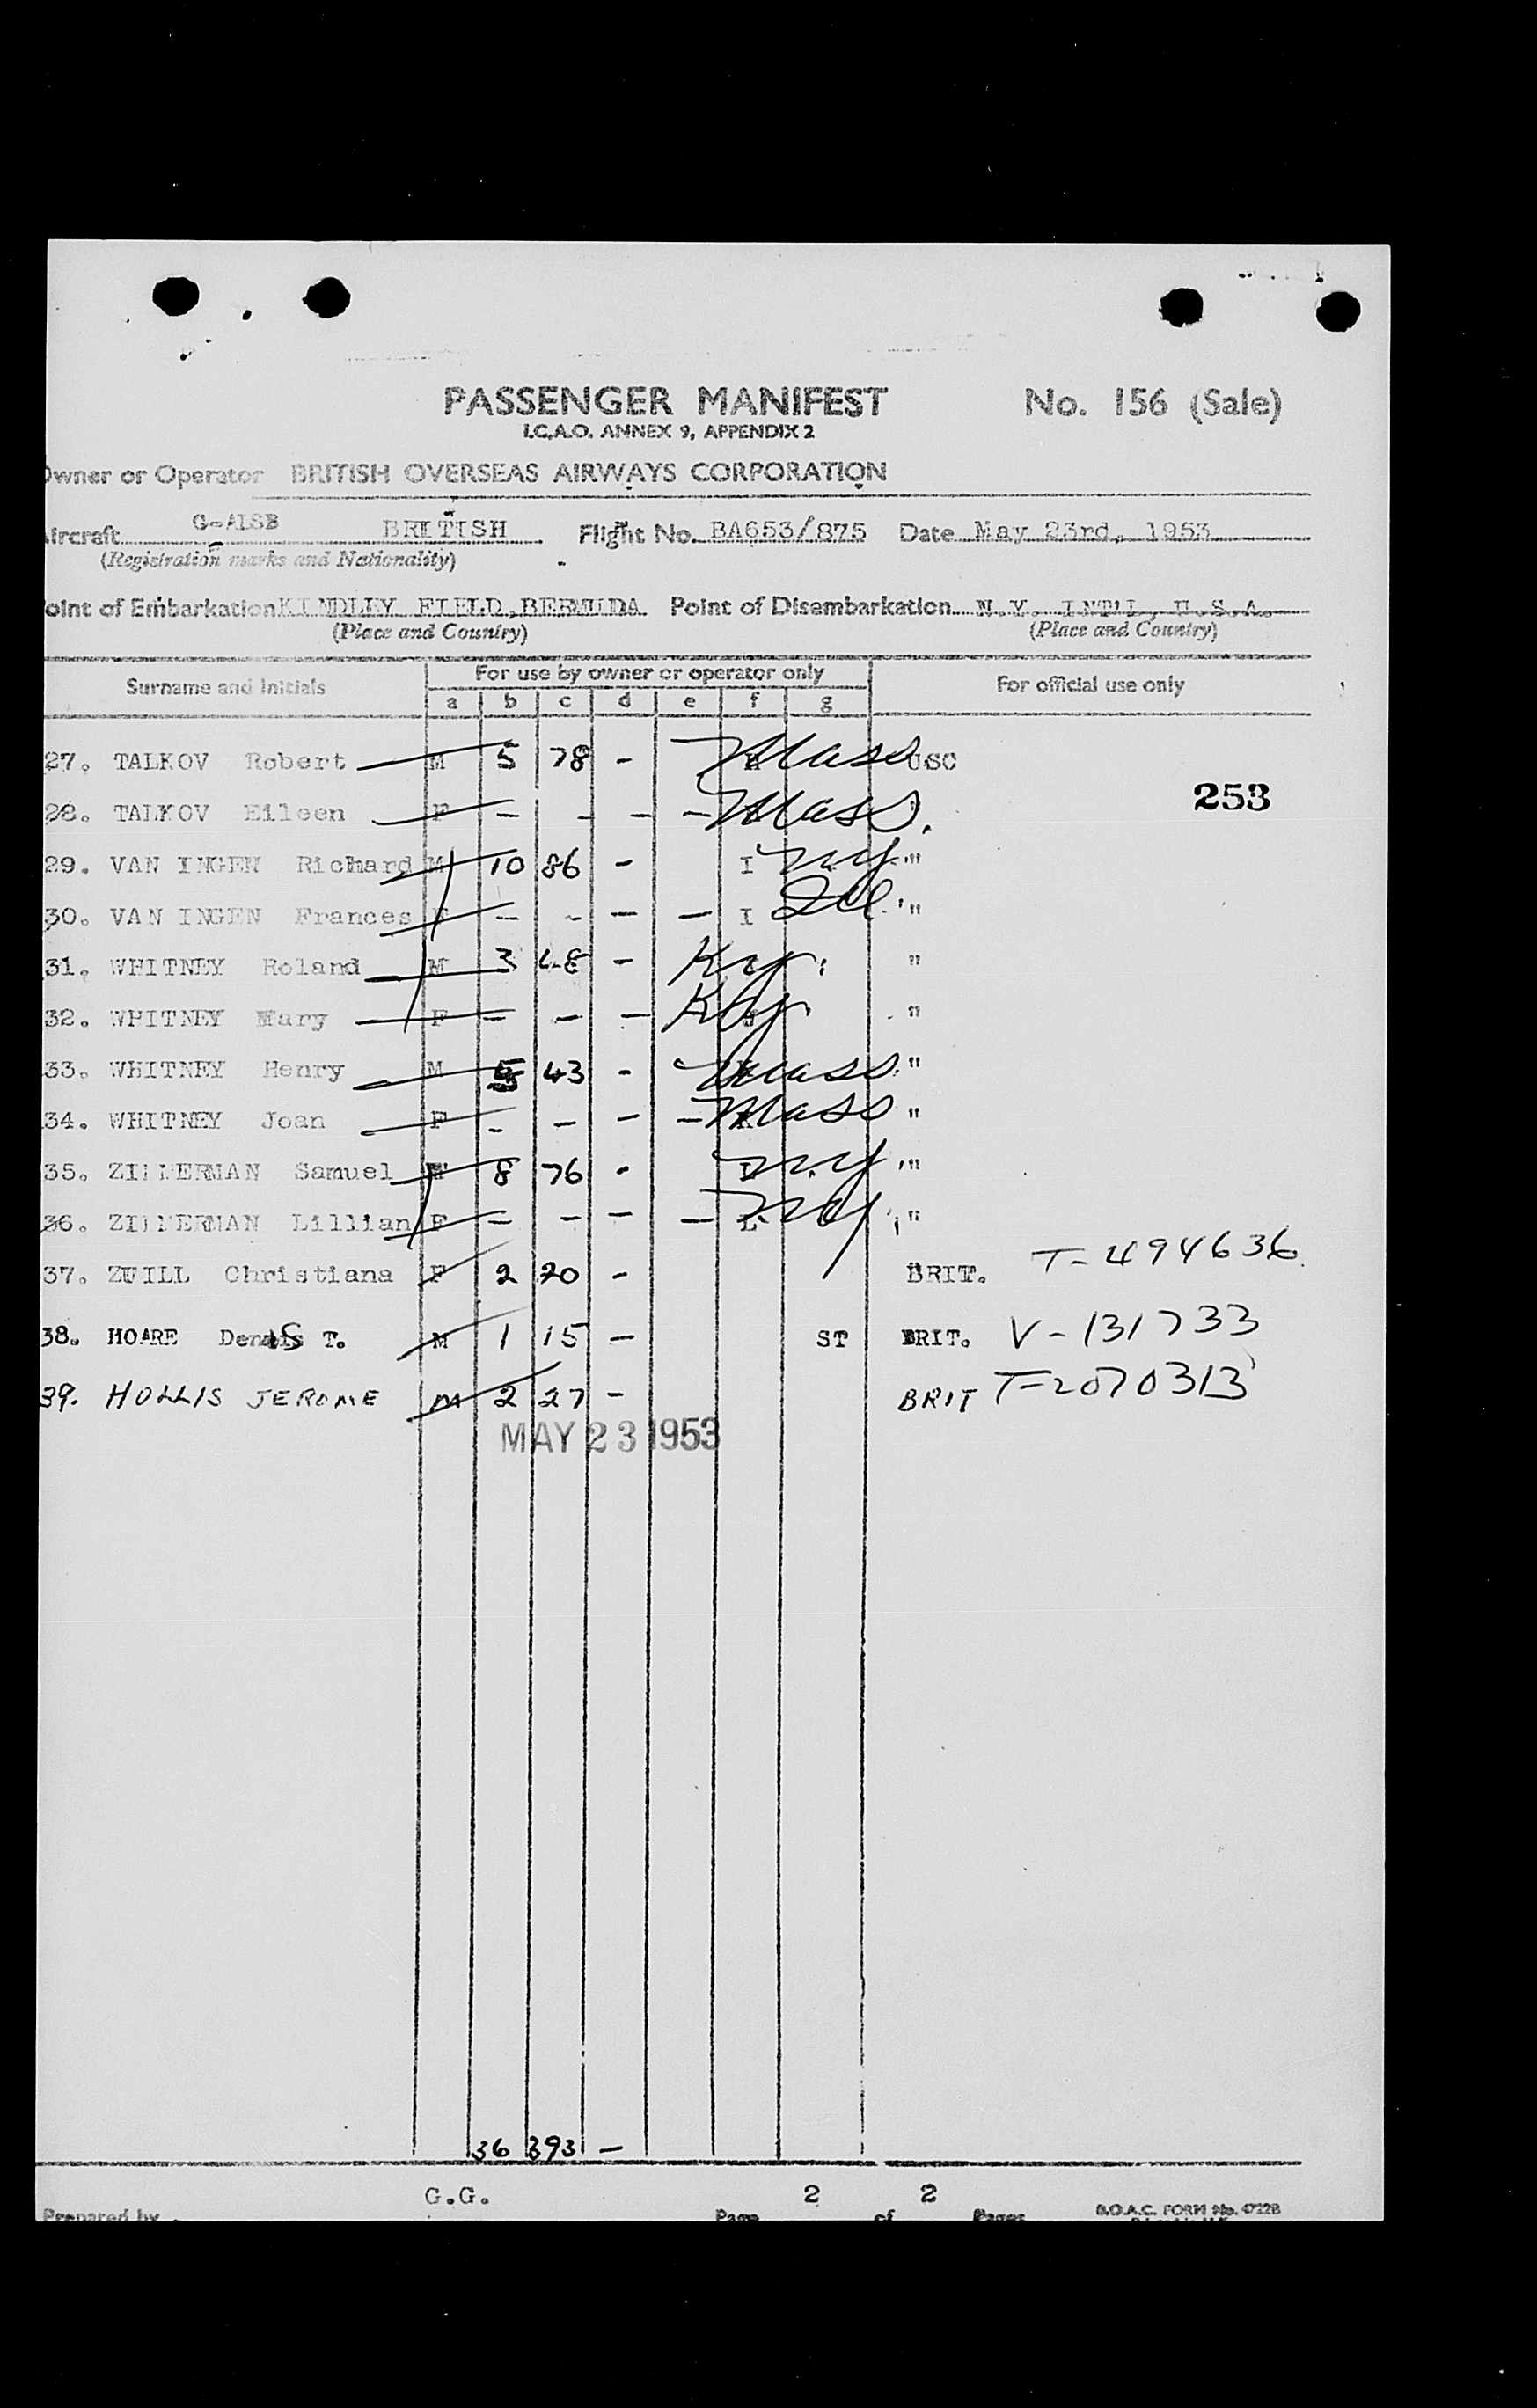 PASSENGER MANIFEST No. 156 (Sale)
I.C.A.O. ANNEX 9, APPENDIX 2
Owner or Operator BRITISH OVERSEAS AIRWAYS CORPORATION
Aircraft G-ALSB BRITISH Flight No. BA653/875 Date May 23rd, 1953
(Registration marks and Nationality)
Point of Embarkation KINDLEY FIELD, BERMUDA Point of Disembarkation N.Y. INTL, U.S.A.
(Place and Country) (Place and Country)
Surname and Initials For use by owner or operator only For official use only
a b c d e f g
27. TALKOV Robert M 5 78 - Mass USC
253
28. TALKOV Eileen F - - - - Mass.
29. VAN INGEN Richard M 10 86 - I NY "
30. VAN INGEN Frances F - - - - I Ill "
31. WHITNEY Roland M 3 48 - Ky. "
32. WHITNEY Mary F - - - Ky. "
33. WHITNEY Henry M 5 43 - Mass. "
34. WHITNEY Joan F - - - - Mass "
35. ZIMMERMAN Samuel M 8 76 - N.Y "
36. ZIMMERMAN Lillian F - - - - L NY "
37. ZUILL Christiana F 2 20 - BRIT. T-494636
38. HOARE Dennis T. M 1 15 - ST BRIT. V-131733
39. HOLLIS JEROME M 2 27 - BRIT T-2070313
MAY 23 1953
36 393 -
G.G. 2 2
Prepared by Page of Pages B.O.A.C. FORM No. 4722B